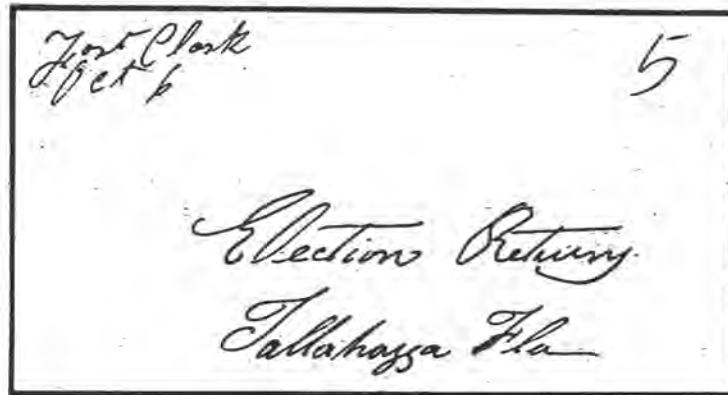 Fort Clark
Oct 6
5
Election Returns
Tallahassa Fla